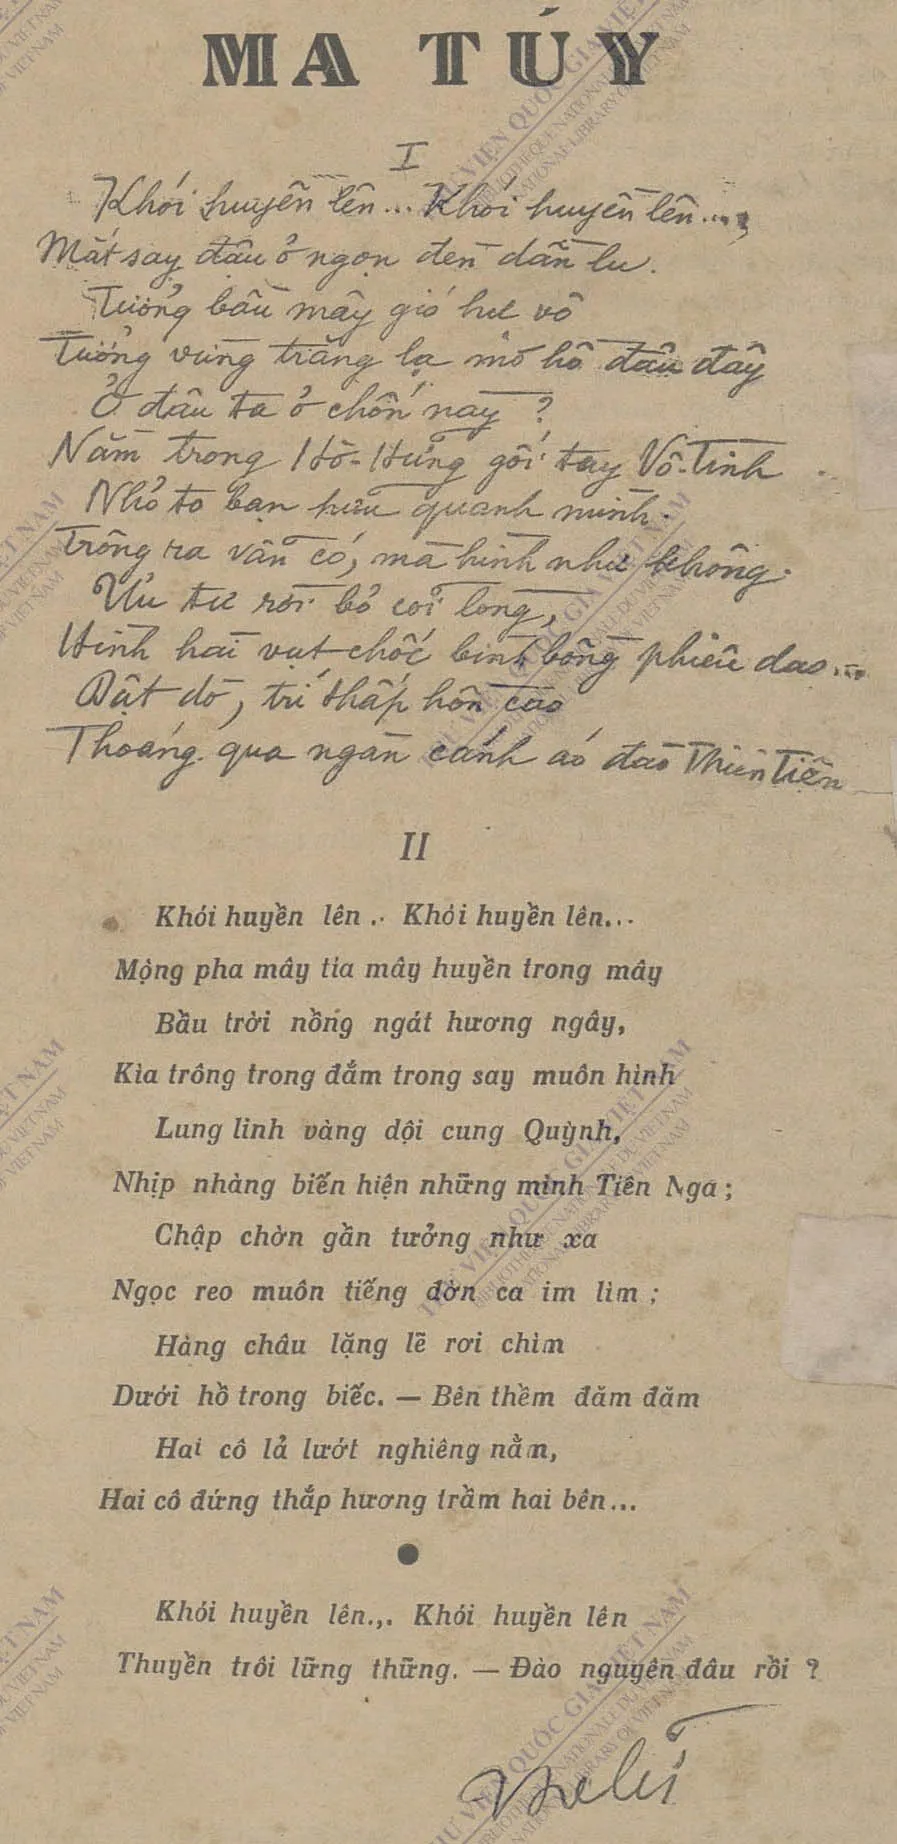 MA TÚY
I
Khói huyền lên... Khói huyền lên...,
Mắt say đậu ở ngọn đèn dần lu.
Tưởng bầu mây gió hư vô
Tưởng vừng trăng lạ mơ hồ đâu đây
Ở đâu ta ở chốn này ?
Nằm trong Hồ-Hưng gối tay Vô-Tình
Nhỏ to bạn hữu quanh mình.
Trông ra vẫn có, mà hình như không.
Ưu tư rời bỏ cõi lòng,
Hình hài vụt chốc bình bồng phiêu dao...
Dật dờ, trí thấp hồn cao
Thoáng qua ngàn cánh áo đào Thiên Tiên
II
Khói huyền lên... Khói huyền lên...
Mộng pha mây tía mây huyền trong mây
Bầu trời nồng ngát hương ngây,
Kìa trông trong đắm trong say muôn hình
Lung linh vàng dội cung Quỳnh,
Nhịp nhàng biến hiện những mình Tiên Nga ;
Chập chờn gần tưởng như xa
Ngọc reo muôn tiếng đờn ca im lìm ;
Hàng châu lặng lẽ rơi chìm
Dưới hồ trong biếc. — Bên thềm đăm đăm
Hai cô lả lướt nghiêng nằm,
Hai cô đứng thắp hương trầm hai bên...
●
Khói huyền lên... Khói huyền lên
Thuyền trôi lững thững. — Đào nguyên đâu rồi ?
Thế Lữ
THƯ VIỆN QUỐC GIA VIỆT NAM
BIBLIOTHEQUE NATIONALE DU VIETNAM
NATIONAL LIBRARY OF VIETNAM